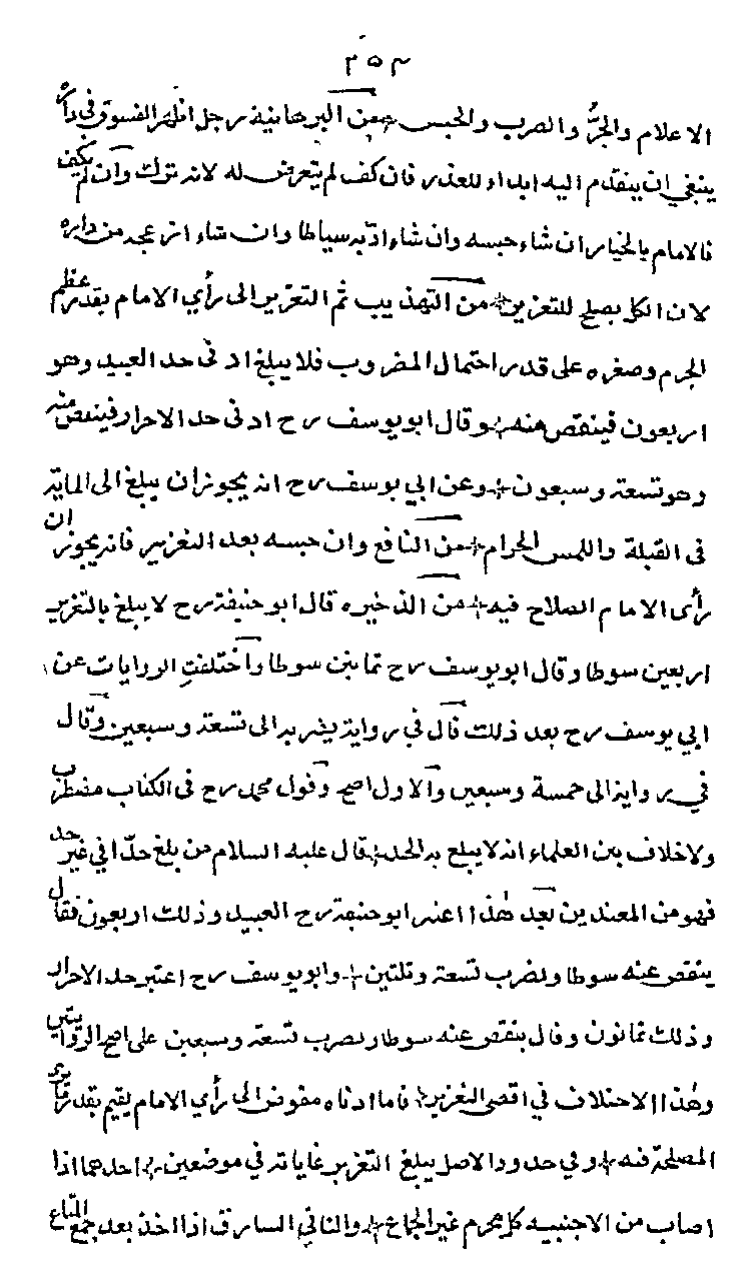 ٢٥٣
الاعلام والجرّ والضرب والحبس من البرهانية رجل اظهر الفسوق في داره
ينبغي ان يتقدم اليه ابداء للعذر فان كف لم يتعرض له لانه ترك وان لم يكف
فالامام بالخيار ان شاء حبسه وان شاء ادّبه سياطا وان شاء ازعجه من داره
لان الكل يصلح للتعزير من التهذيب ثم التعزير الى رأي الامام بقدر عظم
الجرم وصغره على قدر احتمال المضروب فلا يبلغ ادنى حد العبيد وهو
اربعون فينقص منه وقال ابو يوسف رح ادنى حد الاحرار فينقص منه
وهو تسعة وسبعون وعن ابي يوسف رح انه يجوز ان يبلغ الى المائة
في القبلة واللمس الحرام من النافع وان حبسه بعد التعزير فانه يجوز ان
رأى الامام الصلاح فيه من الذخيره قال ابو حنيفة رح لا يبلغ بالتعزير
اربعين سوطا وقال ابو يوسف رح ثمانين سوطا واختلفت الروايات عن
ابي يوسف رح بعد ذلك قال في رواية يضربه الى تسعة وسبعين وقال
في رواية الى خمسة وسبعين والاول اصح وقول محمد رح في الكتاب مضطرب
ولا خلاف بين العلماء انه لا يبلغ به الحد قال عليه السلام من بلغ حدّا في غير حد
فهو من المعتدين بعد هٰذا اعتبر ابو حنيفة رح العبيد وذلك اربعون فقال
ينقص عنه سوطا ويضرب تسعة وثلثين وابو يوسف رح اعتبر حد الاحرار
وذلك ثمانون وقال ينقص عنه سوطا ويضرب تسعة وسبعين على اصح الروايتين
وهٰذا الاختلاف في اقصى التعزير فاما ادناه مفوض الى رأي الامام يقيم بقدر ما يرى
المصلحة فيه وفي حدود الاصل يبلغ التعزير غاياته في موضعين احدهما اذا
اصاب من الاجنبيه كل محرم غير الجماع والثاني السارق اذا اخذ بعد جمع المتاع